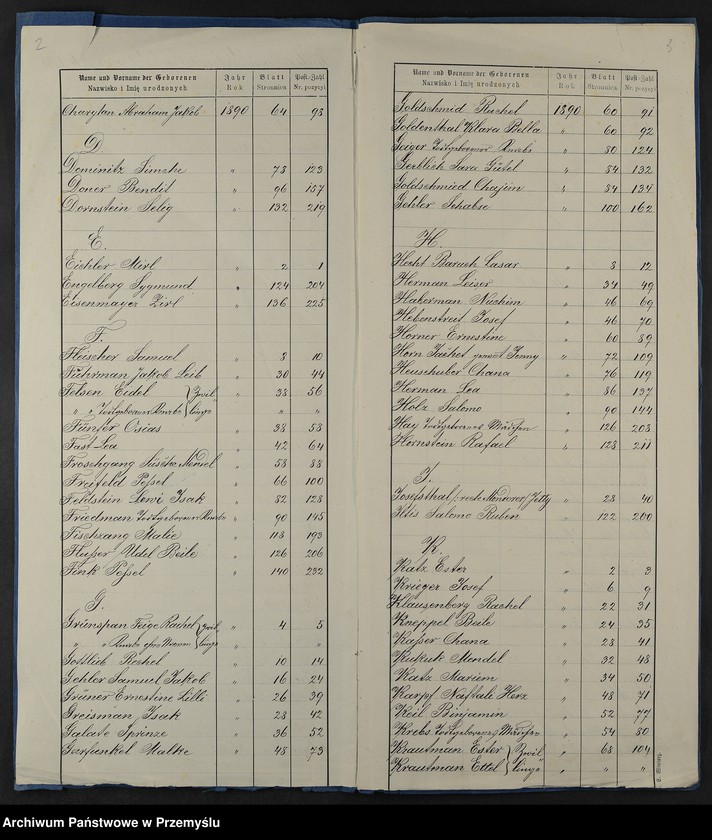 2
Name und Vorname der Geborenen Jahr Blatt Post-Zahl
Nazwisko i Imię urodzonych Rok Stronnica Nr. pozycyi
Charytan Abraham Jakob 1890 64 93
D.
Dominitz " 73 123
Doner Bendit " 96 157
Dornstein Selig " 132 219
E.
Eichler Mirl " 2 1
Engelberg Sygmund " 124 204
Eisenmayer Zirl " 136 225
F.
Fleischer Samuel " 8 10
Fuhrman Jakob Leib " 30 44
Felsen Eidel Zwil " 38 56
" " Todtgeborener Knabe linge " " "
Fünfer Osias " 38 58
Fast Lea " 42 64
Froschgang Mendel " 58 88
Freifeld Pessel " 66 100
Feldstein Lewi Isak " 82 128
Friedman Todtgeborener Knabe " 90 145
Fischzang Malie " 118 193
Flusser Udel Beile " 126 206
Fink Pessel " 140 232
G.
Grünspan Feige Rachel Zwil " 4 5
" " Knabe ohne Namen linge " "
Gottlieb Reshel " 10 14
Gehler Samuel Jakob " 16 24
Grüner Ernestine Lilli " 26 39
Greisman Isak " 28 42
Galate Sprinze " 36 52
Gorfunkel Malke " 48 73
3
Name und Vorname der Geborenen Jahr Blatt Post-Zahl
Nazwisko i Imię urodzonych Rok Stronnica Nr. pozycyi
Goldschmid Rachel 1890 60 91
Goldenthal Klara Bella " 60 92
Geiger Todtgeborener Knabe " 80 124
Gerblich Sara Gütel " 84 132
Goldschmied Chajim " 84 134
Gehler Schabse " 100 162
H.
Hecht Baruch Lasar " 8 12
Herman Leiser " 34 49
Haberman Nuchim " 46 69
Hebenstreit Josef " 46 70
Horner Ernestine " 60 89
Horn genant Jenny " 72 109
Heuschuber Chana " 76 119
Herman Lea " 86 137
Holz Salomo " 90 144
Hay Todtgeborenes Mädchen " 126 208
Hornstein Rafael " 128 211
J.
Josefsthal /: recte Monderer / Jetty " 28 40
Iltis Salomo Ruben " 122 200
K.
Katz Ester " 2 3
Krieger Josef " 6 9
Klausenberg Rachel " 22 31
Kneppel Beile " 24 35
Kasser Chana " 28 41
Kukuk Mendel " 32 48
Katz Mariem " 34 50
Karpf Naftale Herz " 48 71
Keil Binjamin " 52 77
Krebs Todtgeborenes Mädchen " 54 80
Krautman Ester Zwil " 68 104
Krautman Ettel linge " " "
Archiwum Państwowe w Przemyślu